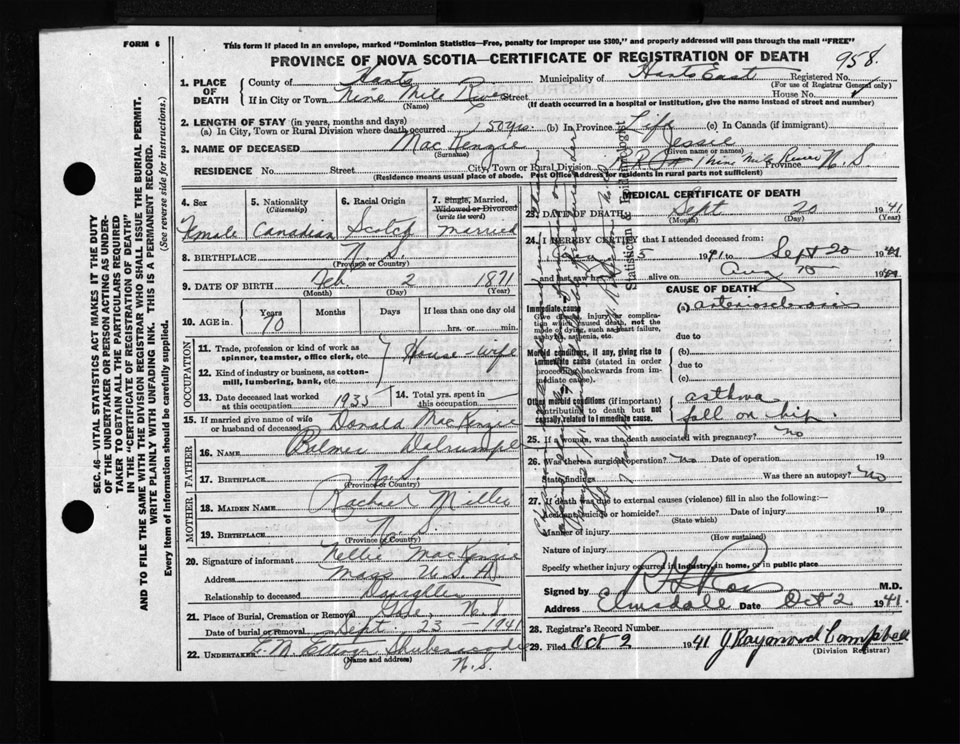 FORM 6
This form if placed in an envelope, marked "Dominion Statistics—Free, penalty for improper use $300," and properly addressed will pass through the mail "FREE"
PROVINCE OF NOVA SCOTIA—CERTIFICATE OF REGISTRATION OF DEATH
958
1. PLACE OF DEATH
County of Hants Municipality of Hants East Registered No.
(For use of Registrar General only)
If in City or Town Nine Mile River Street House No.
(Name) (If death occurred in a hospital or institution, give the name instead of street and number)
2. LENGTH OF STAY (in years, months and days)
(a) In City, Town or Rural Division where death occurred 50 yrs (b) In Province Life (c) In Canada (if immigrant)
3. NAME OF DECEASED MacKenzie Jessie
(Surname) (Given name or names)
RESIDENCE No. Street City, Town or Rural Division Nine Mile River Province N S
(Residence means usual place of abode. Post Office Address for residents in rural parts not sufficient)
4. Sex Female
5. Nationality (Citizenship) Canadian
6. Racial Origin Scotch
7. Single, Married, Widowed or Divorced (write the word) Married
8. BIRTHPLACE N. S.
(Province or Country)
9. DATE OF BIRTH Feb 2 1871
(Month) (Day) (Year)
10. AGE in Years Months Days If less than one day old
70 hrs. or min.
OCCUPATION
11. Trade, profession or kind of work as spinner, teamster, office clerk, etc. House-wife
12. Kind of industry or business, as cotton-mill, lumbering, bank, etc.
13. Date deceased last worked at this occupation 1935
14. Total yrs. spent in this occupation
15. If married give name of wife or husband of deceased Donald MacKenzie
FATHER
16. NAME
17. BIRTHPLACE N. S.
(Province or Country)
MOTHER
18. MAIDEN NAME
19. BIRTHPLACE N.
(Province or Country)
20. Signature of informant Nellie MacKenzie
Address Mass U.S.A
Relationship to deceased Daughter
21. Place of Burial, Cremation or Removal N. S.
Date of burial or removal Sept. 23 - 1941
22. UNDERTAKER Shubenacadie N.S.
(Name and address)
MEDICAL CERTIFICATE OF DEATH
23. DATE OF DEATH Sept 20 1941
(Month) (Day) (Year)
24. I HEREBY CERTIFY that I attended deceased from:
5 1941 to Sept 20 1941
and last saw h alive on Aug 15 1941
CAUSE OF DEATH
Immediate cause
Give disease, injury or complication which caused death, not the mode of dying, such as heart failure, asphyxia, asthenia, etc.
(a) arteriosclerosis
due to
Morbid conditions, if any, giving rise to immediate cause (stated in order proceeding backwards from immediate cause).
(b)
due to
(c)
Other morbid conditions (if important) contributing to death but not causally related to immediate cause.
asthma
fall on hip.
25. If a woman, was the death associated with pregnancy? No
26. Was there a surgical operation? No Date of operation 19
State findings Was there an autopsy? No
27. If death was due to external causes (violence) fill in also the following:
Accident, suicide or homicide? Date of injury 19
(State which)
Manner of injury
(How sustained)
Nature of injury
Specify whether injury occurred in industry, in home, or in public place
Signed by M.D.
Address Elmsdale Date Oct 2 1941.
28. Registrar's Record Number
29. Filed Oct 2 1941 J Raymond Campbell
(Division Registrar)
SEC. 46—VITAL STATISTICS ACT MAKES IT THE DUTY
OF THE UNDERTAKER OR PERSON ACTING AS UNDERTAKER TO OBTAIN ALL THE PARTICULARS REQUIRED
IN THE "CERTIFICATE OF REGISTRATION OF DEATH"
AND TO FILE THE SAME WITH THE DIVISION REGISTRAR WHO SHALL ISSUE THE BURIAL PERMIT.
WRITE PLAINLY WITH UNFADING INK. THIS IS A PERMANENT RECORD.
Every item of information should be carefully supplied. (See reverse side for instructions.)